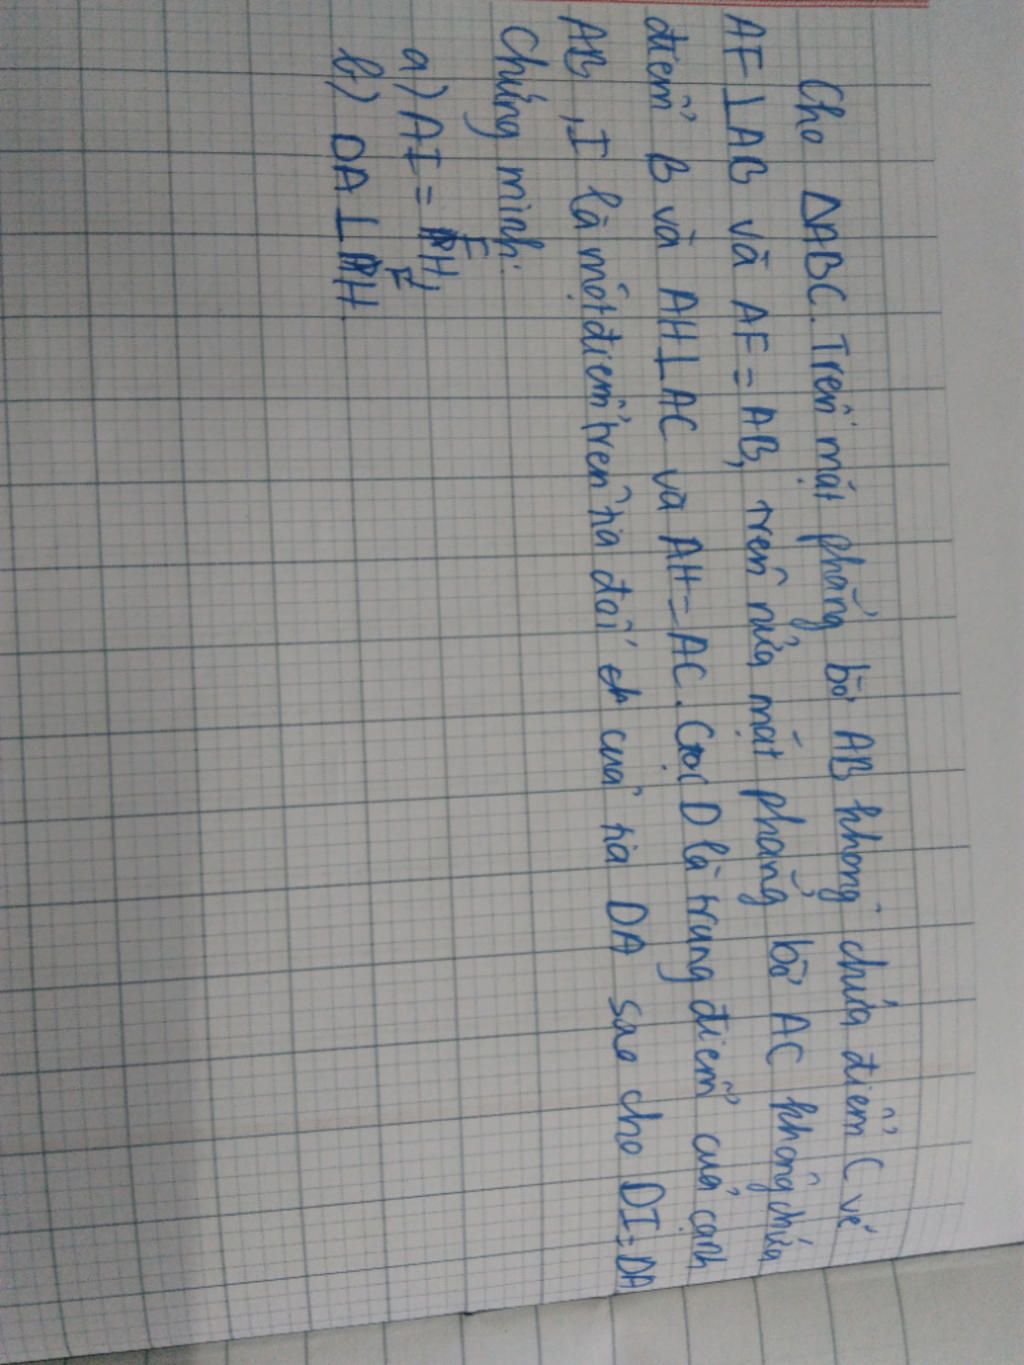 Cho ΔABC. Trên mặt phẳng bờ AB không chứa điểm C vẽ
AF ⊥ AB và AF = AB, trên nửa mặt phẳng bờ AC không chứa
điểm B vẽ AH ⊥ AC và AH = AC. Gọi D là trung điểm của cạnh
AB, I là một điểm trên tia đối của tia DA sao cho DI = DA
Chứng minh:
a) AI = FH
b) DA ⊥ FH.